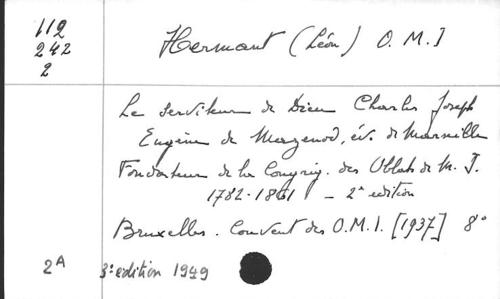 112
242
2
Hermant (Léon) O. M. I
Le Serviteur de Dieu Charles Joseph
Eugène de Mazenod, év. de Marseille
Fondateur de la Congrég. des Oblats de M. I.
1782-1861 - 2e edition
Bruxelles. Couvent des O.M.I. [1937] 8°
2A 3e edition 1949